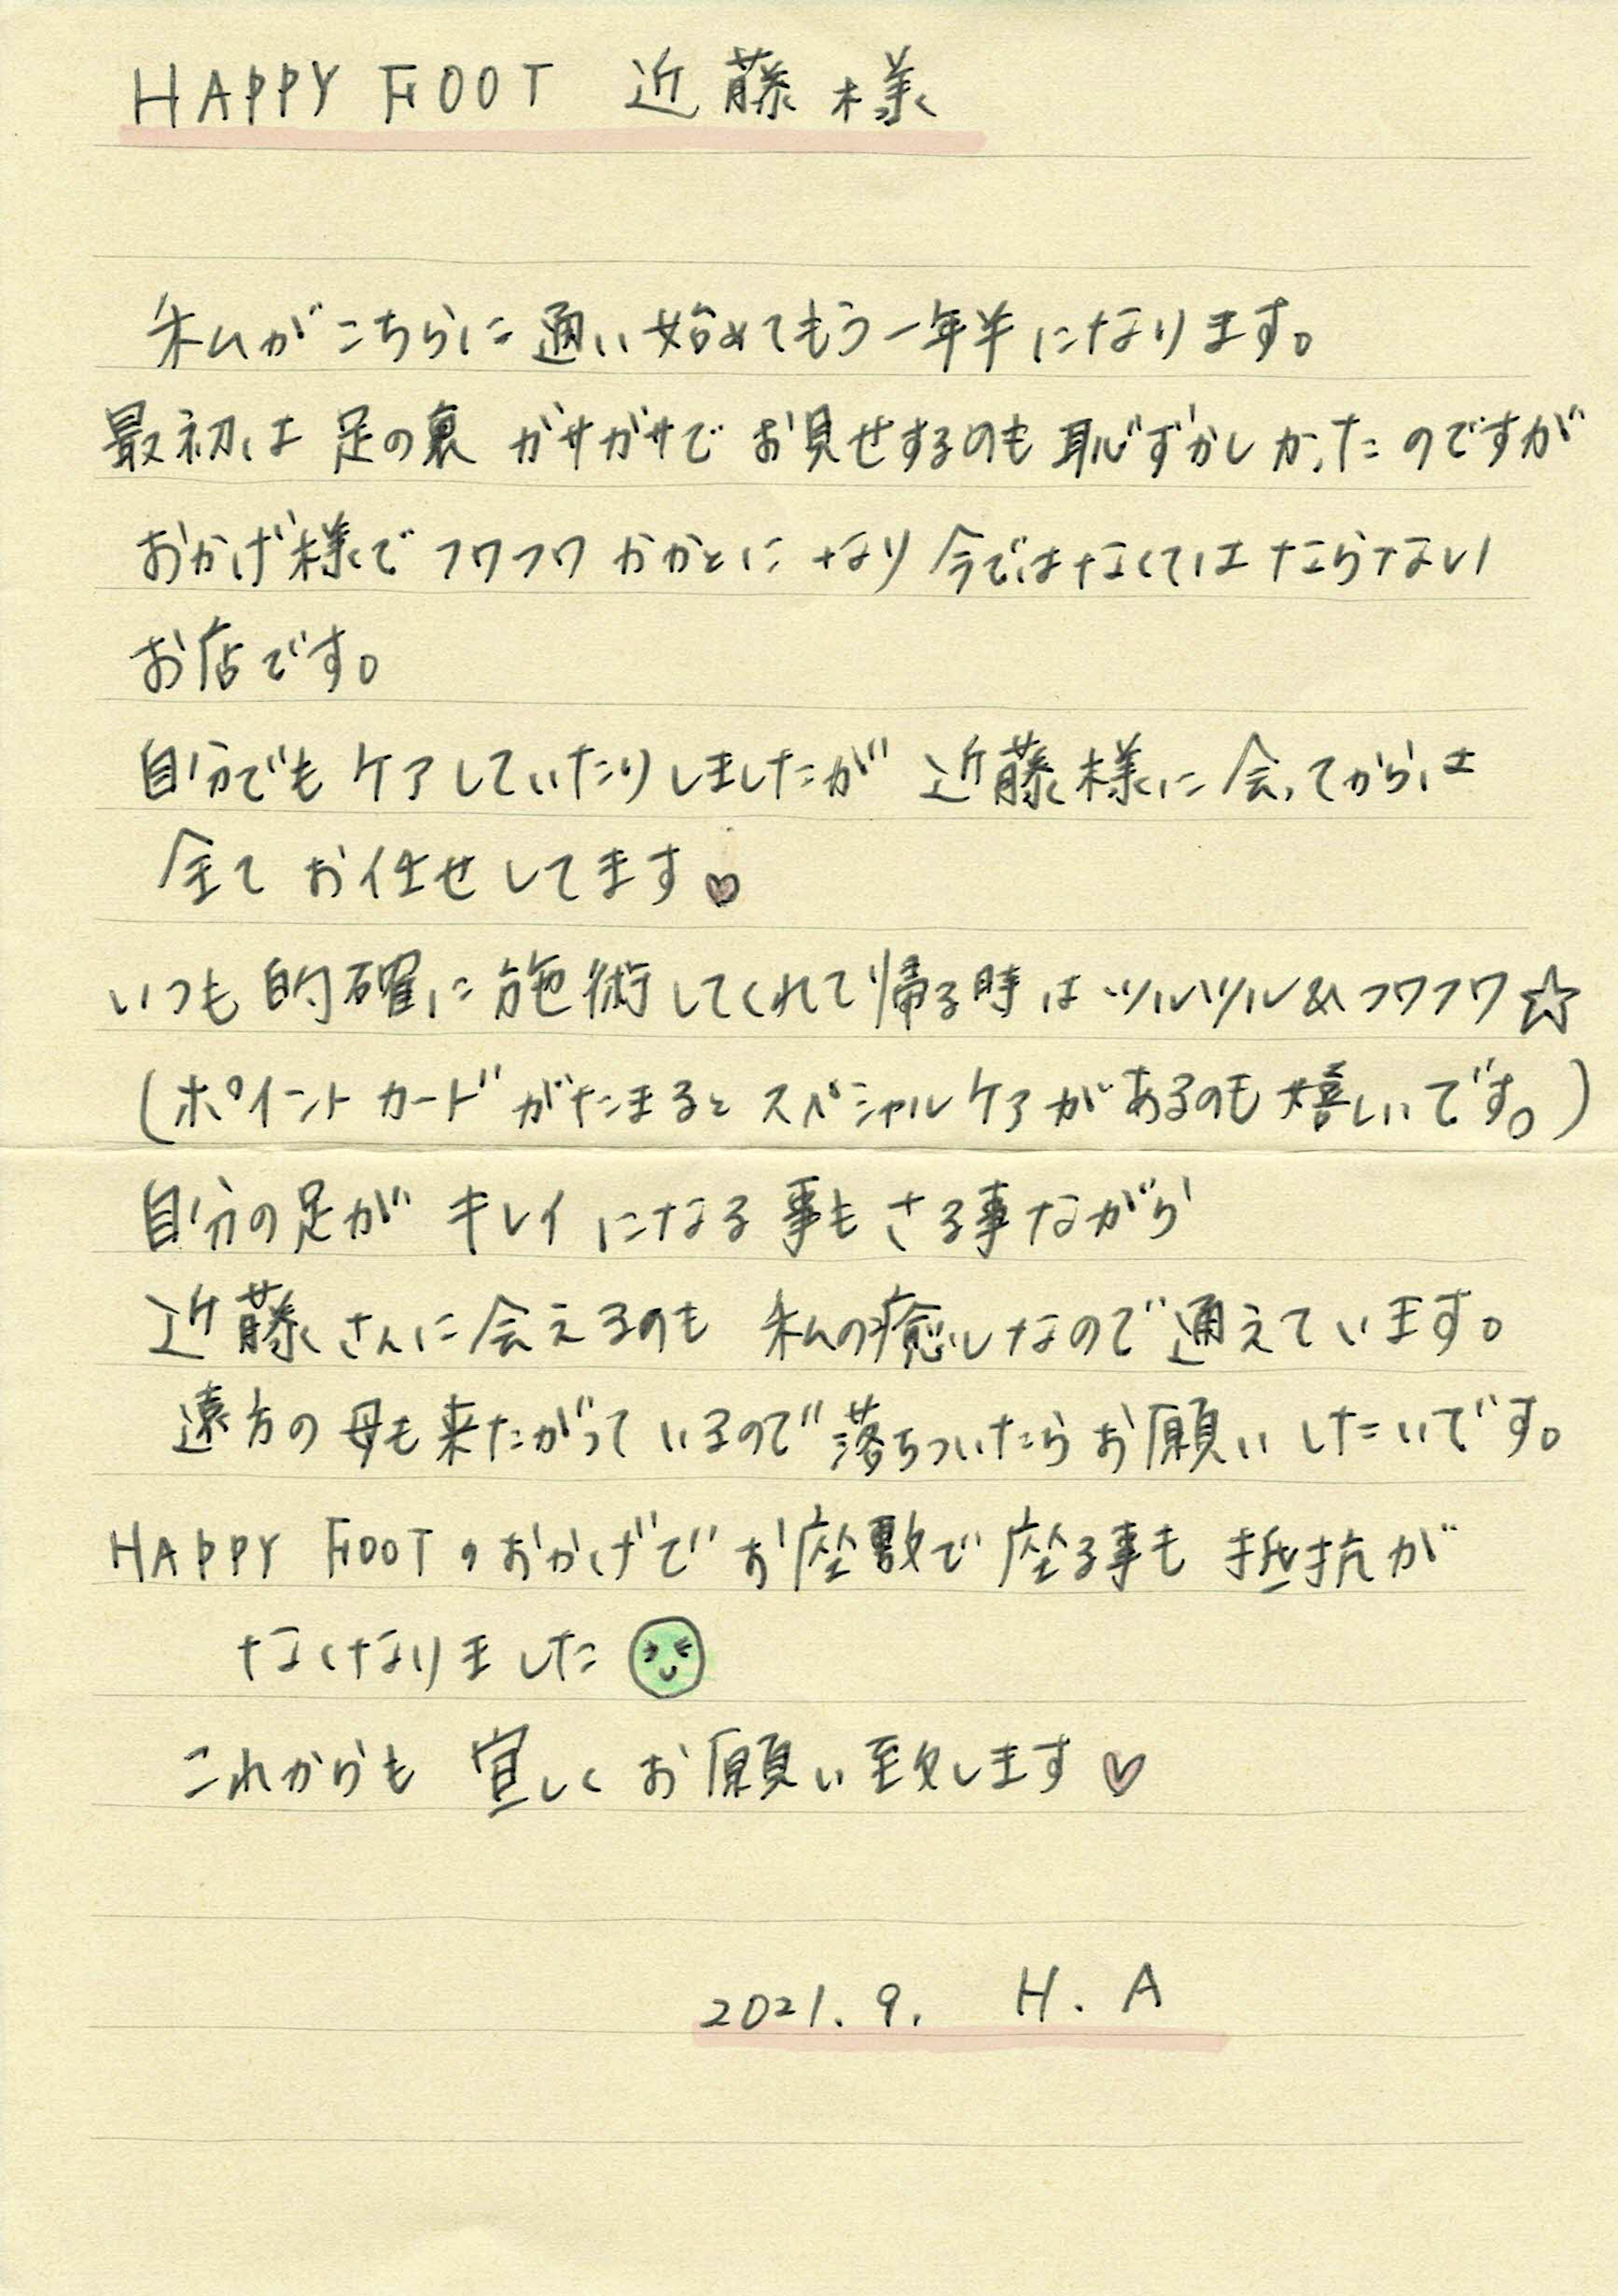 HAPPY FOOT 近藤様
私がこちらに通い始めてもう一年半になります。
最初は足の裏 ガサガサで お見せするのも 恥ずかしかったのですが
おかげ様で フワフワ かかとに なり 今ではなくてはならない
お店です。
自分でも ケアしていたりしましたが 近藤様に会ってからは
全て お任せしてます♡
いつも 的確に施術してくれて帰る時は ツルツル&フワフワ☆
(ポイントカードがたまると スペシャルケアがあるのも嬉しいです。)
自分の足が キレイになる事もさる事ながら
近藤さんに会えるのも 私の癒しなので通えています。
遠方の母も来たがっているので落ちついたらお願いしたいです。
HAPPY FOOTのおかげで お座敷で座る事も 抵抗が
なくなりました
これからも 宜しくお願い致します♡
2021.9. H.A